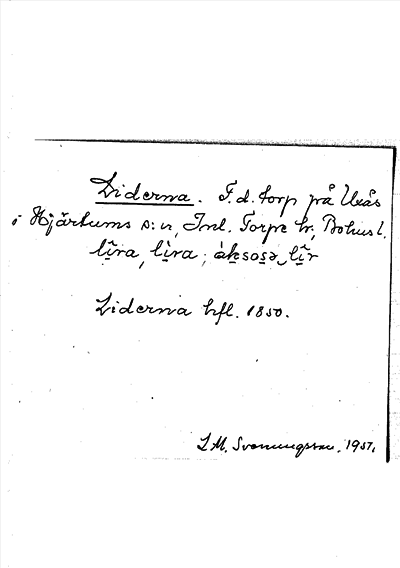 Liderna. F. d. torp på Uxås
i Hjärtums s:n, Inl. Torpe hr, Bohusl.
lĩra, lìra; àksosə lĩr
Liderna hfl. 1850.
L M. Svenungsson. 1937.